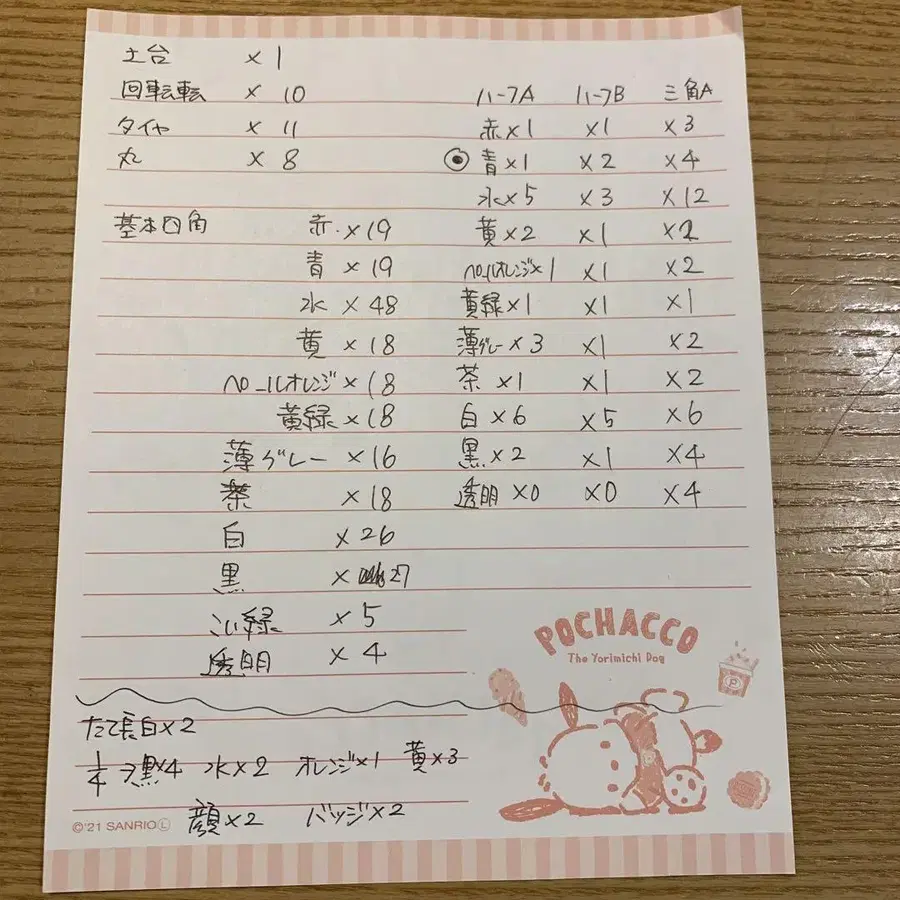 土台 ×1
回転転 × 10
タイヤ × 11
丸 × 8
基本四角 赤・×19
青 ×19
水 ×48
黄 ×18
ペールオレンジ×18
黄緑×18
薄グレー ×16
茶 ×18
白 ×26
黒 × 27
こい緑 ×5
透明 ×4
ハーフA ハーフB 三角A
赤×1 ×1 ×3
青×1 ×2 ×4
水×5 ×3 ×12
黄×2 ×1
ペールオレンジ×1 ×1 ×2
黄緑×1 ×1 ×1
薄グレー×3 ×1 ×2
茶×1 ×1 ×2
白×6 ×5 ×6
黒×2 ×1 ×4
透明×0 ×0 ×4
たて長白×2
1/4 黒×4 水×2 オレンジ×1 黄×3
顔×2 バッジ×2
POCHACCO
The Yorimichi Dog
P
©'21 SANRIO Ⓛ